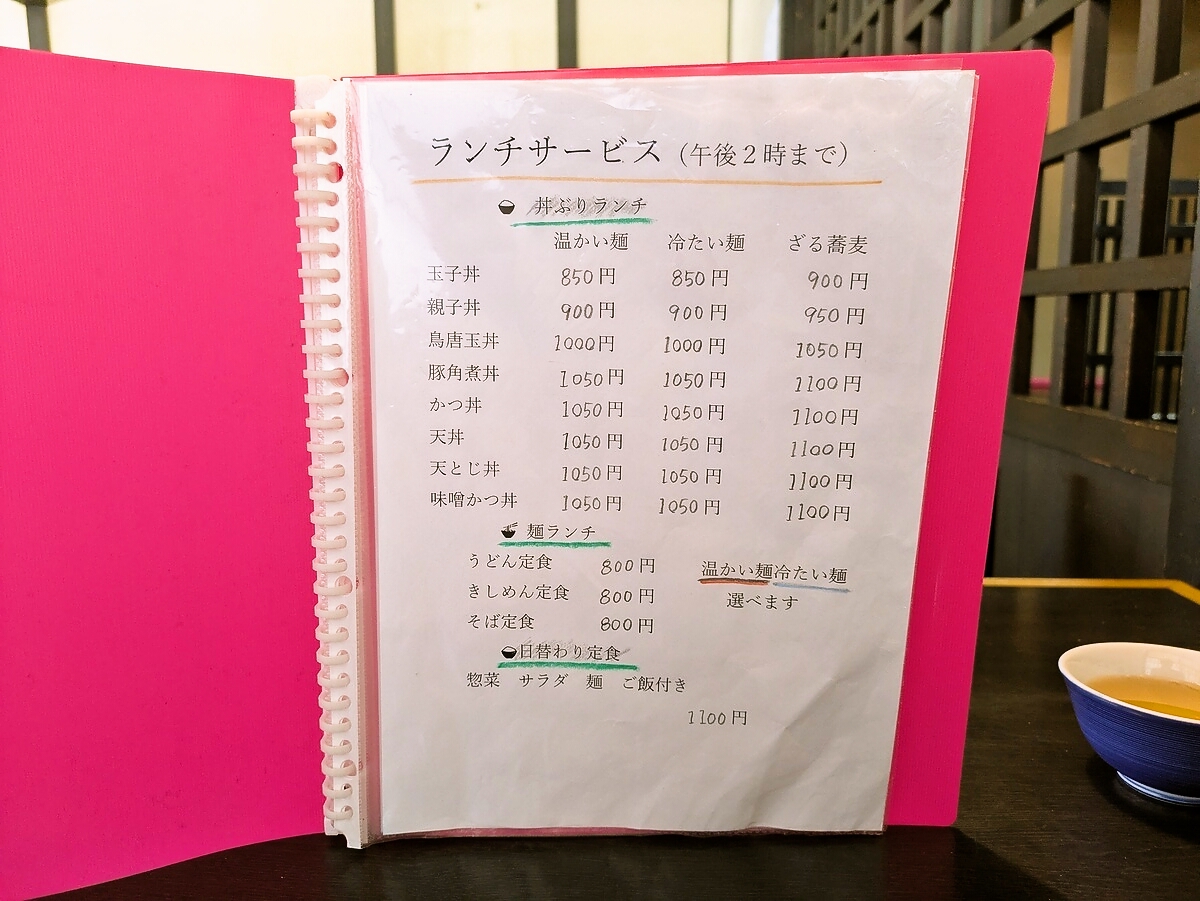 ランチサービス（午後２時まで）
丼ぶりランチ
温かい麺 冷たい麺 ざる蕎麦
玉子丼 850円 850円 900円
親子丼 900円 900円 950円
鳥唐玉丼 1000円 1000円 1050円
豚角煮丼 1050円 1050円 1100円
かつ丼 1050円 1050円 1100円
天丼 1050円 1050円 1100円
天とじ丼 1050円 1050円 1100円
味噌かつ丼 1050円 1050円 1100円
麺ランチ
うどん定食 800円 温かい麺冷たい麺
きしめん定食 800円 選べます
そば定食 800円
日替わり定食
惣菜 サラダ 麺 ご飯付き
1100円